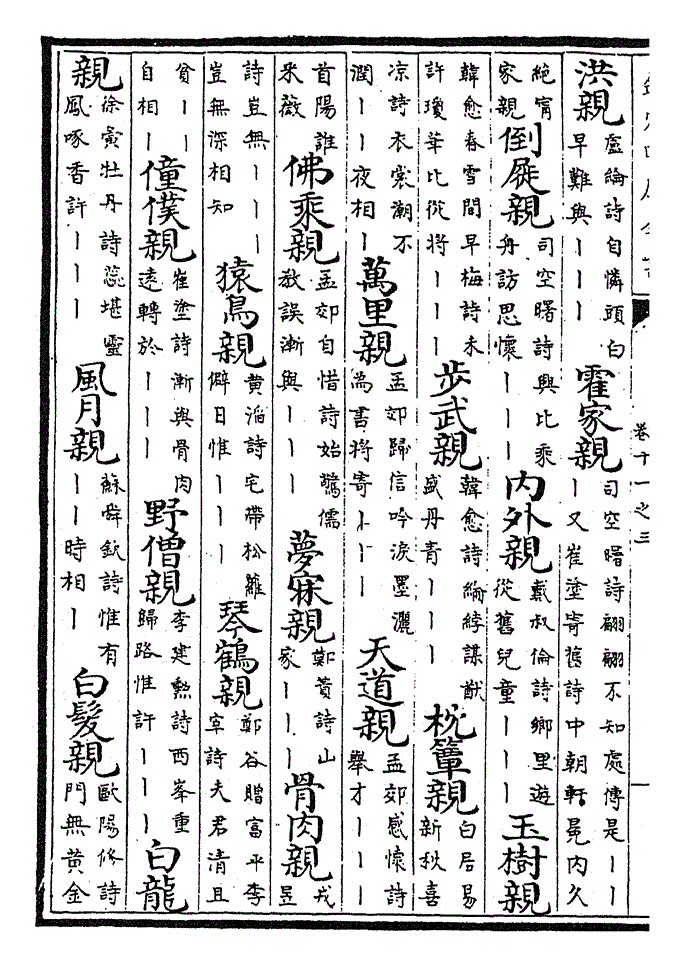 欽定四庫全書 卷十一之三
洪親 盧綸詩自憐頭白早難與｜｜｜ 霍家親 司空曙詩翩翩不知處傳是｜｜｜又崔塗寄舊詩中朝軒冕內久
絕甯家親 倒屣親 司空曙詩與比乘舟訪思懷｜｜｜ 內外親 戴叔倫詩鄉里遊從舊兒童｜｜｜ 玉樹親
韓愈春雪間早梅詩未許瓊華比從將｜｜｜ 步武親 韓愈詩綸綍謀猷盛丹青｜｜｜ 枕簟親 白居易新秋喜
凉詩衣裳潮不潤｜｜夜相｜ 萬里親 孟郊歸信吟淚墨灑為書將寄｜｜｜ 天道親 孟郊感懷詩舉才｜｜｜
首陽誰采薇 佛乘親 孟郊自惜詩始驚儒教誤漸與｜｜｜ 夢寐親 鄭蕡詩山家｜｜｜ 骨肉親 戎昱
詩豈無｜｜｜豈無深相知 猿鳥親 黃滔詩宅帶松蘿僻日惟｜｜｜ 琴鶴親 鄭谷贈富平李宰詩夫君清且
貧｜｜自相｜ 僮僕親 崔塗詩漸與骨肉遠轉於｜｜｜ 野僧親 李建勲詩西峯重歸路惟許｜｜｜ 白龍
親 徐夤牡丹詩蕊堪靈鳳啄香許｜｜｜ 風月親 蘇舜欽詩惟有｜｜時相｜ 白髮親 歐陽修詩門無黃金